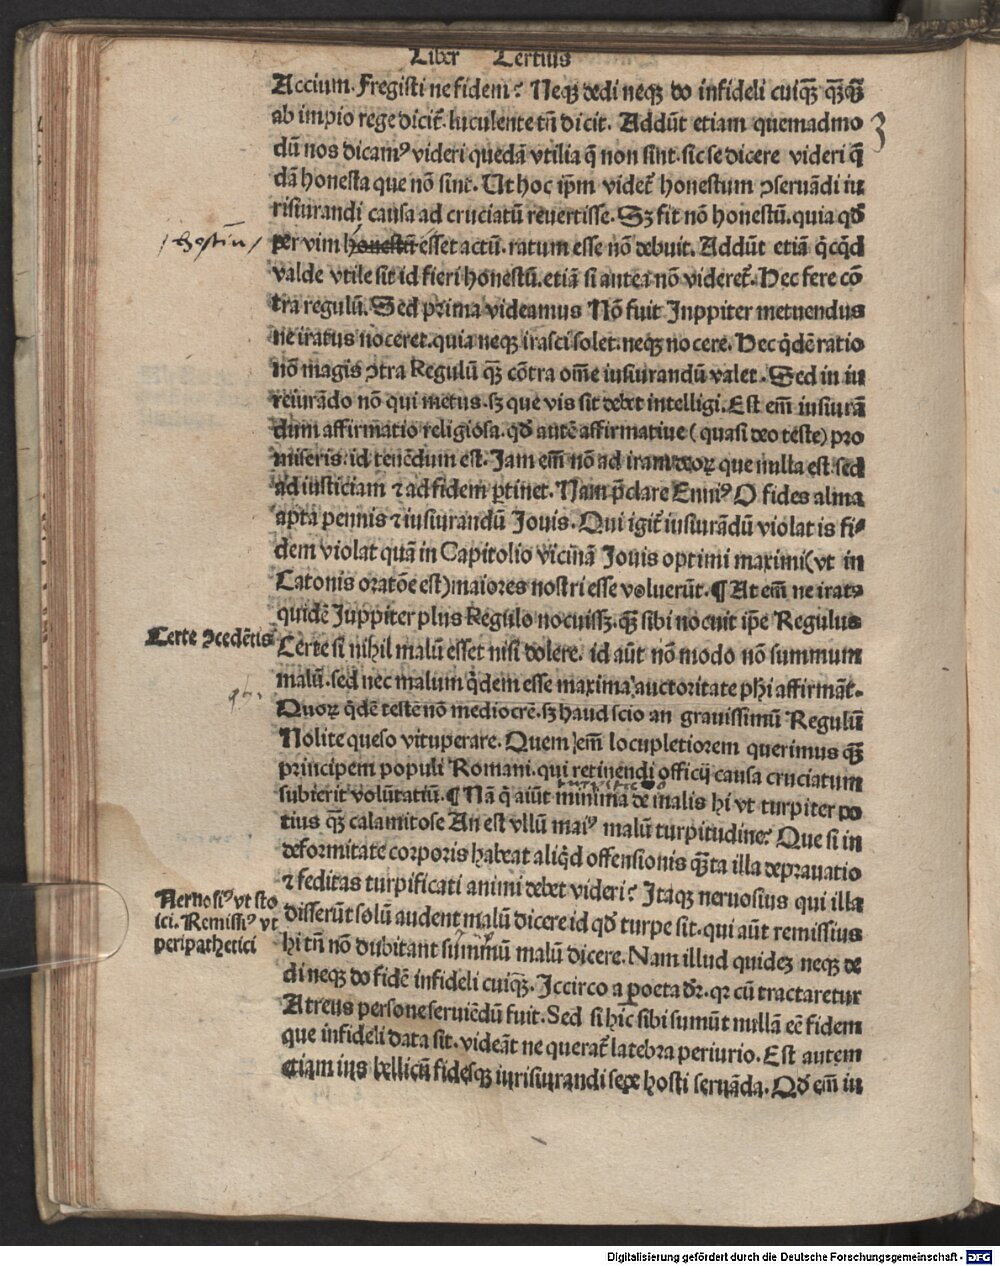 Liber Tertius
Accium. Fregisti ne fidem? Neqꝫ dedi neqꝫ do infideli cuiqꝫ̄ qꝫ̄qꝫ̄
ab impio rege dicit᷑. luculente tn̄ dicit. Addūt etiam quemadmo
dū nos dicamꝰ videri quedā vtilia q̄ non sint. sic se dicere videri q̄
dā honesta que nō sint. Ut hoc ip̄m videt᷑ honestum ꝯseruādi iu
risiurandi causa ad cruciatū reuertisse. Sꝫ fit nō honestū. quia qd̄
per vim honestū esset actū. ratum esse nō debuit. Addūt etiā q̇cq̇d
valde vtile sit id fieri honestū. etiā si antea nō videret᷑. Hec fere cō
tra regulū. Sed prima videamus Nō fuit Juppiter metuendus
ne iratus noceret. quia neqꝫ irasci solet. neqꝫ nocere. Hec q̇dē ratio
nō magis ꝯtra Regulū qꝫ̄ cōtra om̄e iusiurandū valet. Sed in iu
reiurādo nō qui metus. sꝫ que vis sit debet intelligi. Est em̄ iusiurā
dum affirmatio religiosa. qd̄ autē affirmatiue (quasi deo teste) pro
miseris. id tenēdum est. Jam em̄ nō ad iram deoꝝ que nulla est sed
ad iusticiam ⁊ ad fidem ꝑtinet. Nam p̄clare Enniꝰ O fides alma
apta pennis ⁊ iusiurandū Jouis. Qui igit᷑ iusiurādū violat is fi⸗
dem violat quā in Capitolio vicinā Jouis optimi maximi (vt in
Catonis oratōe est) maiores nostri esse voluerūt. ¶ At em̄ ne iratꝰ
quidē Juppiter plus Regulo nocuissꝫ. qꝫ̄ sibi nocuit ip̄e Regulus
Certe ꝯcedētis
Certe si nihil malū esset nisi dolere. id aūt nō modo nō summum
malū. sed nec malum q̇dem esse maxima auctoritate ph̄i affirmāt.
Quoꝝ q̇dē testē nō mediocrē. sꝫ haud scio an grauissimū Regulū
Nolite queso vituperare. Quem em̄ locupletiorem querimus qꝫ̄
principem populi Romani. qui retinendi officij causa cruciatum
subierit volūtatiū. ¶ Nā q̄ aiūt minima de malis hi vt turpiter po
tius qꝫ̄ calamitose An est vllū maiꝰ malū turpitudine? Que si in
deformitate corporis habeat aliq̇d offensionis quāta illa deprauatio
⁊ feditas turpificati animi debet videri? Itaqꝫ neruosius qui illa
Neruosiꝰ vt sto
ici. Remissiꝰ vt
peripathetici
disserūt solū audent malū dicere id qd̄ turpe sit. qui aūt remissius
hi tn̄ nō dubitant summū malū dicere. Nam illud quideꝫ neqꝫ de
di neqꝫ do fidē infideli cuiqꝫ̄. Jccirco a poeta dr̄. qꝛ cū tractaretur
Atreus persone seruiēdū fuit. Sed si hic sibi sumūt nullā eē fidem
que infideli data sit. videāt ne querat᷑ latebra periurio. Est autem
etiam ius bellicū fidesqꝫ iurisiurandi sepe hosti seruāda. Qd̄ em̄ iu
Digitalisierung gefördert durch die Deutsche Forschungsgemeinschaft - DFG